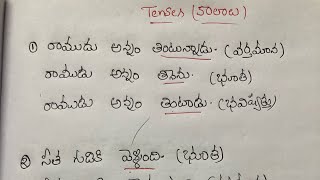 Tenses (కాలాలు)
① రాముడు అన్నం తింటున్నాడు. (వర్తమాన)
రాముడు అన్నం తినెను. (భూత)
రాముడు అన్నం తింటాడు. (భవిష్యత్తు)
② సీత గుడికి వెళ్ళింది. (భూత)